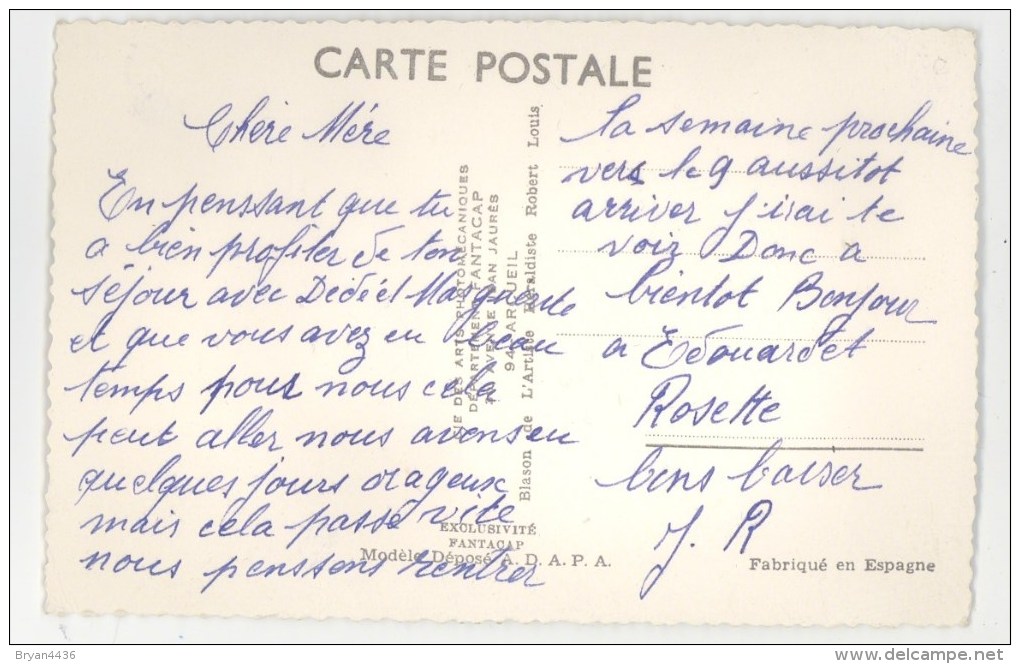 CARTE POSTALE
Chère Mère
En penssant que tu
a bien profiter de ton
séjour avec Dédé et Marguerite
et que vous avez eu beau
temps pour nous cela
peut aller nous avons eu
quelques jours orageux
mais cela passe vite
nous penssons rentrer
la semaine prochaine
vers le 9 aussitot
arriver j'irai te
voir Donc a
bientot Bonjour
a Edouard et
Rosette
bons baiser
J. R
CIE DES ARTS PHOTOMECANIQUES
DÉPARTEMENT FANTACAP
AVENUE JEAN JAURÈS
94 ARCUEIL
Blason de L'Artiste Héraldiste Robert Louis
EXCLUSIVITÉ
FANTACAP
Modèle Déposé A. D. A. P. A.
Fabriqué en Espagne
Bryan4436
www.delcampe.net